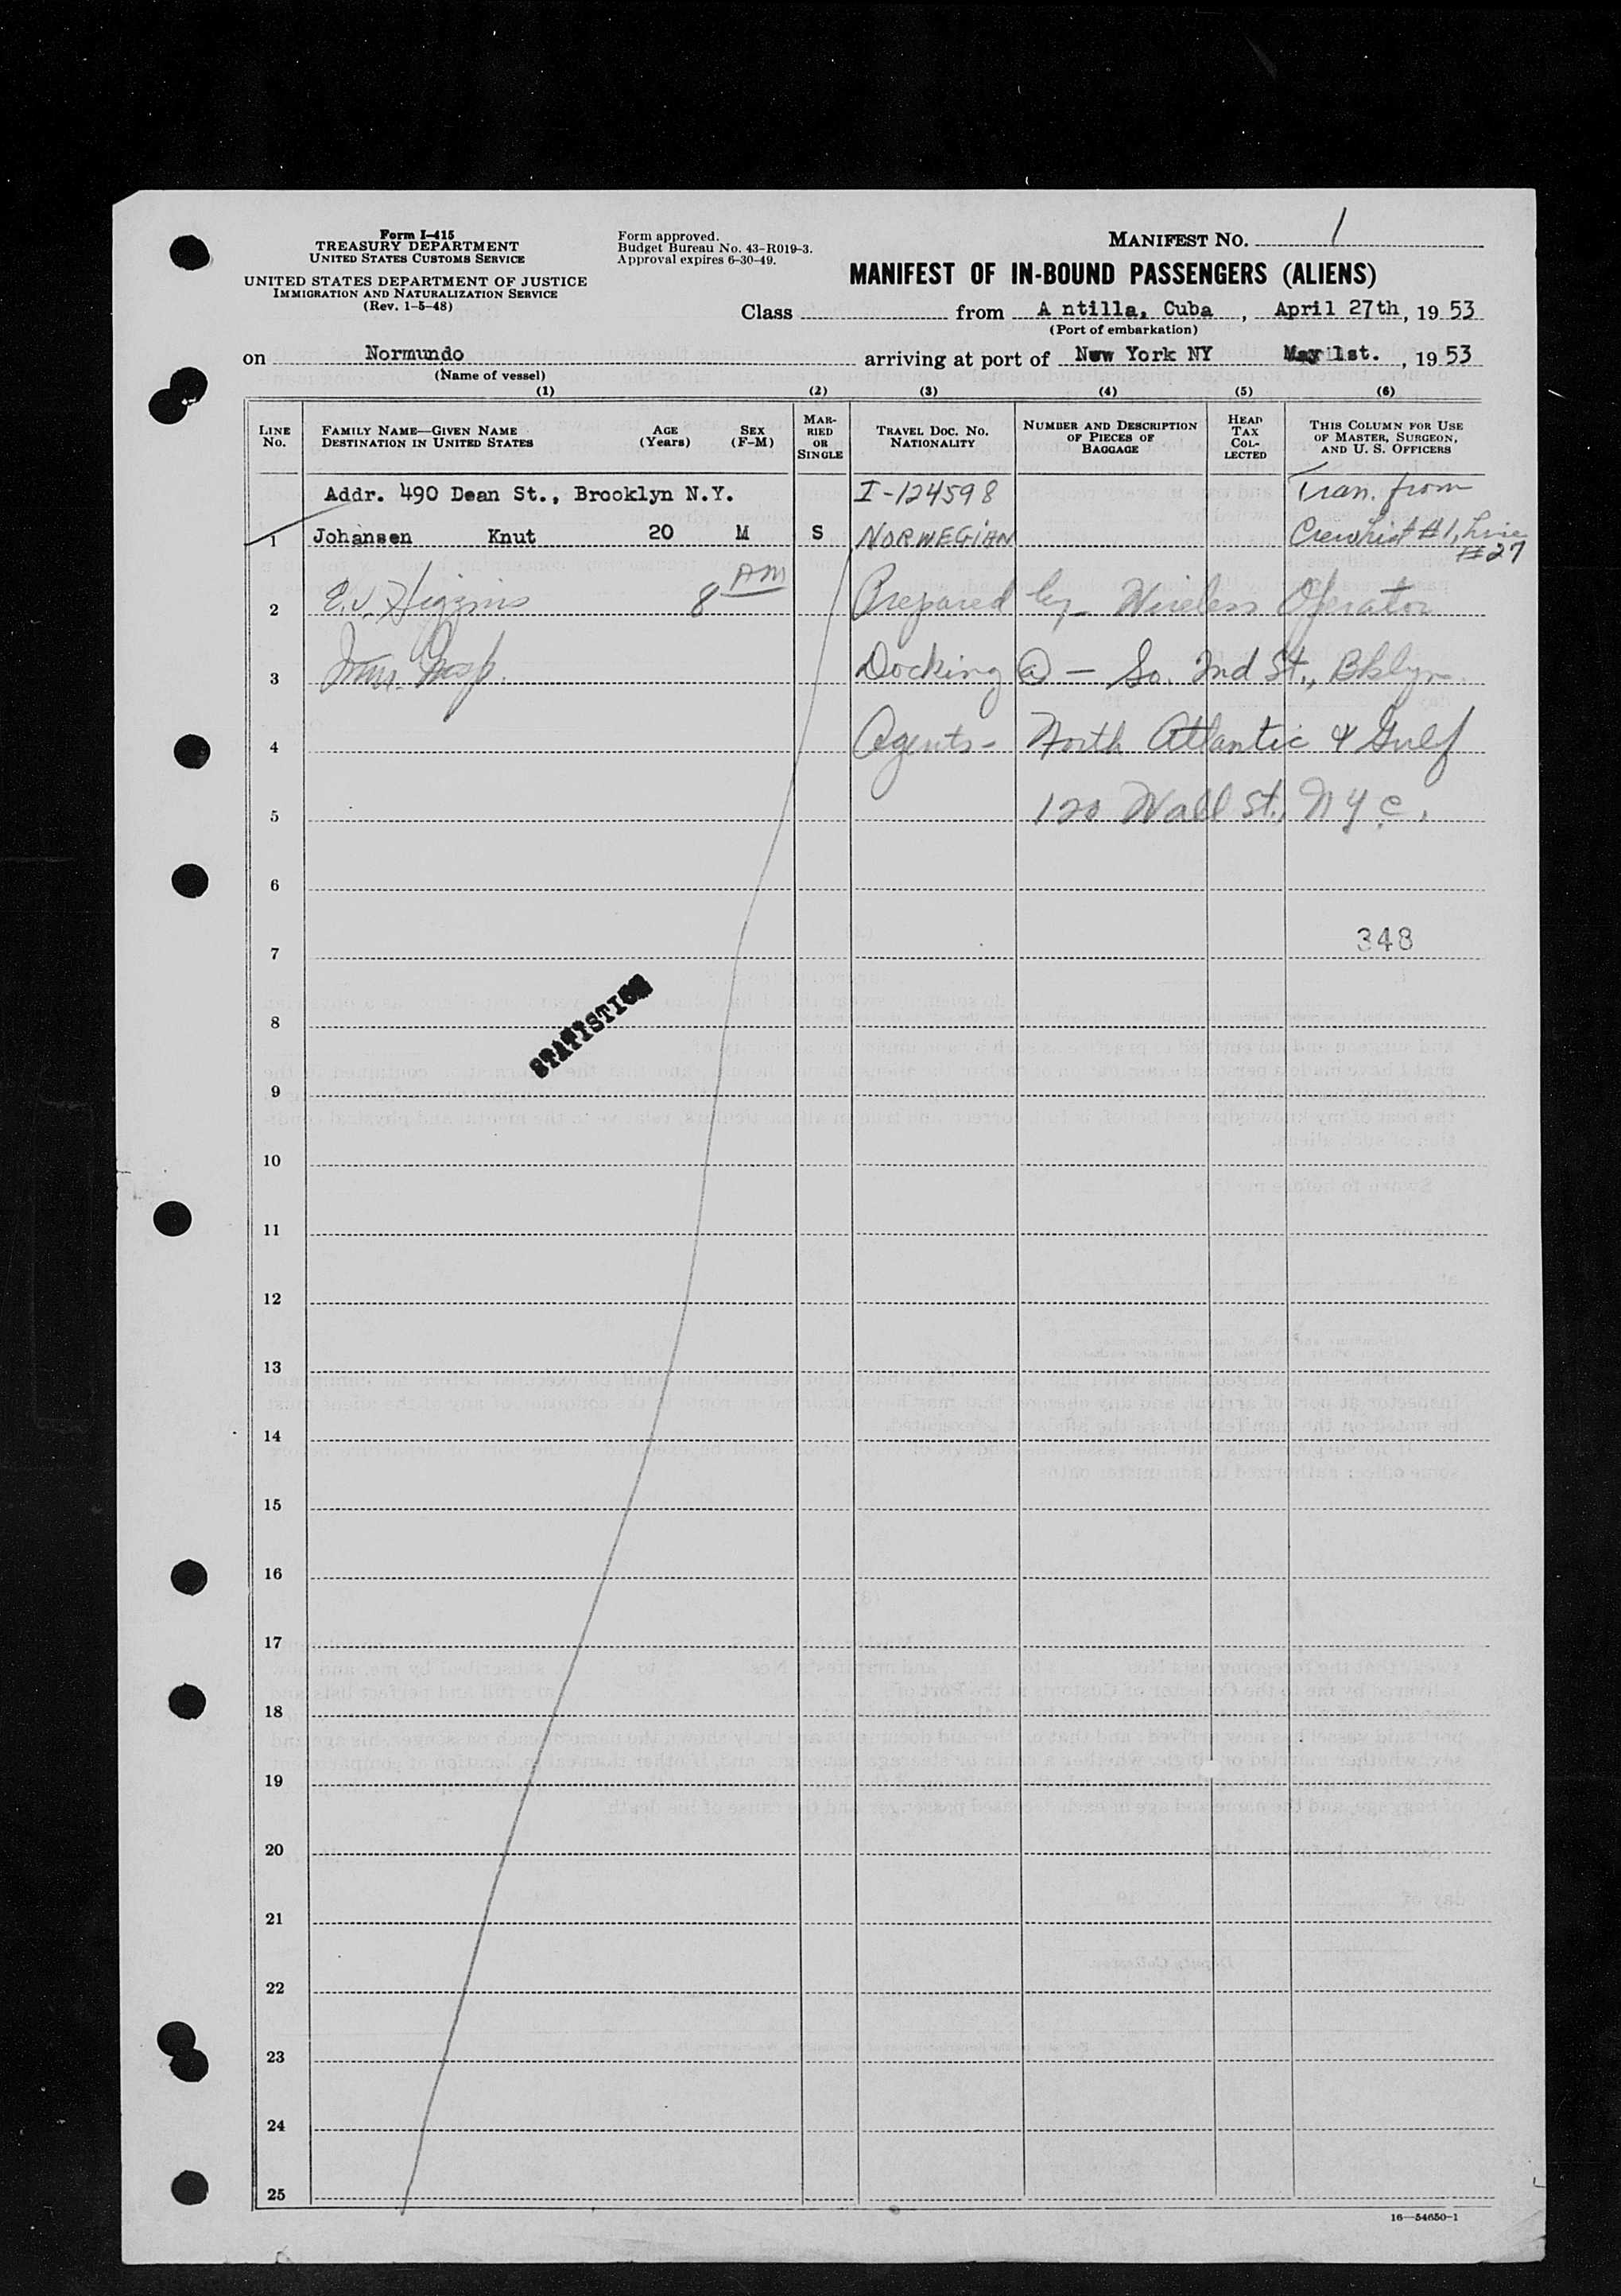 Form I-415
TREASURY DEPARTMENT
UNITED STATES CUSTOMS SERVICE
UNITED STATES DEPARTMENT OF JUSTICE
IMMIGRATION AND NATURALIZATION SERVICE
(Rev. 1-5-48)
Form approved.
Budget Bureau No. 43-R019-3.
Approval expires 6-30-49.
MANIFEST NO. 1
MANIFEST OF IN-BOUND PASSENGERS (ALIENS)
Class from A ntilla, Cuba, April 27th, 19 53
(Port of embarkation)
on Normundo arriving at port of New York NY May 1st., 19 53
(Name of vessel)
(1) (2) (3) (4) (5) (6)
LINE NO. FAMILY NAME—GIVEN NAME DESTINATION IN UNITED STATES AGE (Years) SEX (F-M) MARRIED OR SINGLE TRAVEL DOC. NO. NATIONALITY NUMBER AND DESCRIPTION OF PIECES OF BAGGAGE HEAD TAX COLLECTED THIS COLUMN FOR USE OF MASTER, SURGEON, AND U. S. OFFICERS
Addr. 490 Dean St., Brooklyn N.Y. I-124598 Tran. from
1 Johansen Knut 20 M S NORWEGIAN Crewlist #1, Line
#27
2 E.J. Higgins 8 AM Prepared by Wireless Operator
3 Imm. Insp. Docking @ - So. 2nd St., Bklyn
4 Agents - North Atlantic & Gulf
5 120 Wall St., N Y C.
6
7 348
8 STATISTICS
9
10
11
12
13
14
15
16
17
18
19
20
21
22
23
24
25
16—54650-1